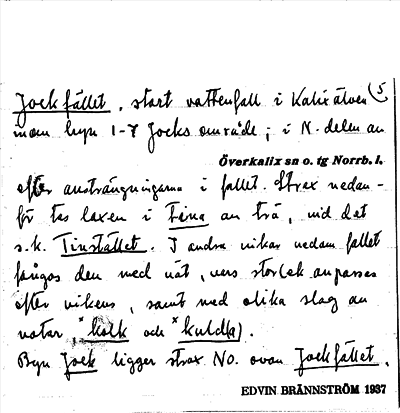 5
Jockfallet, stort vattenfall i Kalixälven
inom byn 1-7 Jocks område; i N. delen av
Överkalix sn o. tg Norrb. l.
efter ansträngningarna i fallet. Strax nedan-
för tas laxen i Tina av trä, vid det
s.k. Tinstället. I andra vikar nedom fallet
fångas den med nät, vars storlek anpassas
efter vikens, samt med olika slag av
notar *kolk och *kuld(a).
Byn Jock ligger strax NO. ovan Jockfallet.
EDVIN BRÄNNSTRÖM 1937